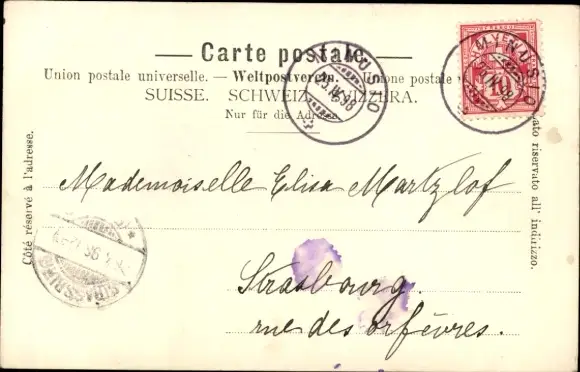 — Carte postale —
Union postale universelle. — Weltpostverein. — Unione postale
SUISSE. SCHWEIZ. SVIZZERA.
Nur für die
Côté réservé à l'adresse.
riservato all' indirizzo.
MINUSIO
MINUSIO
10
Mademoiselle Elisa Martzlof
Strasbourg.
rue des orfèvres.